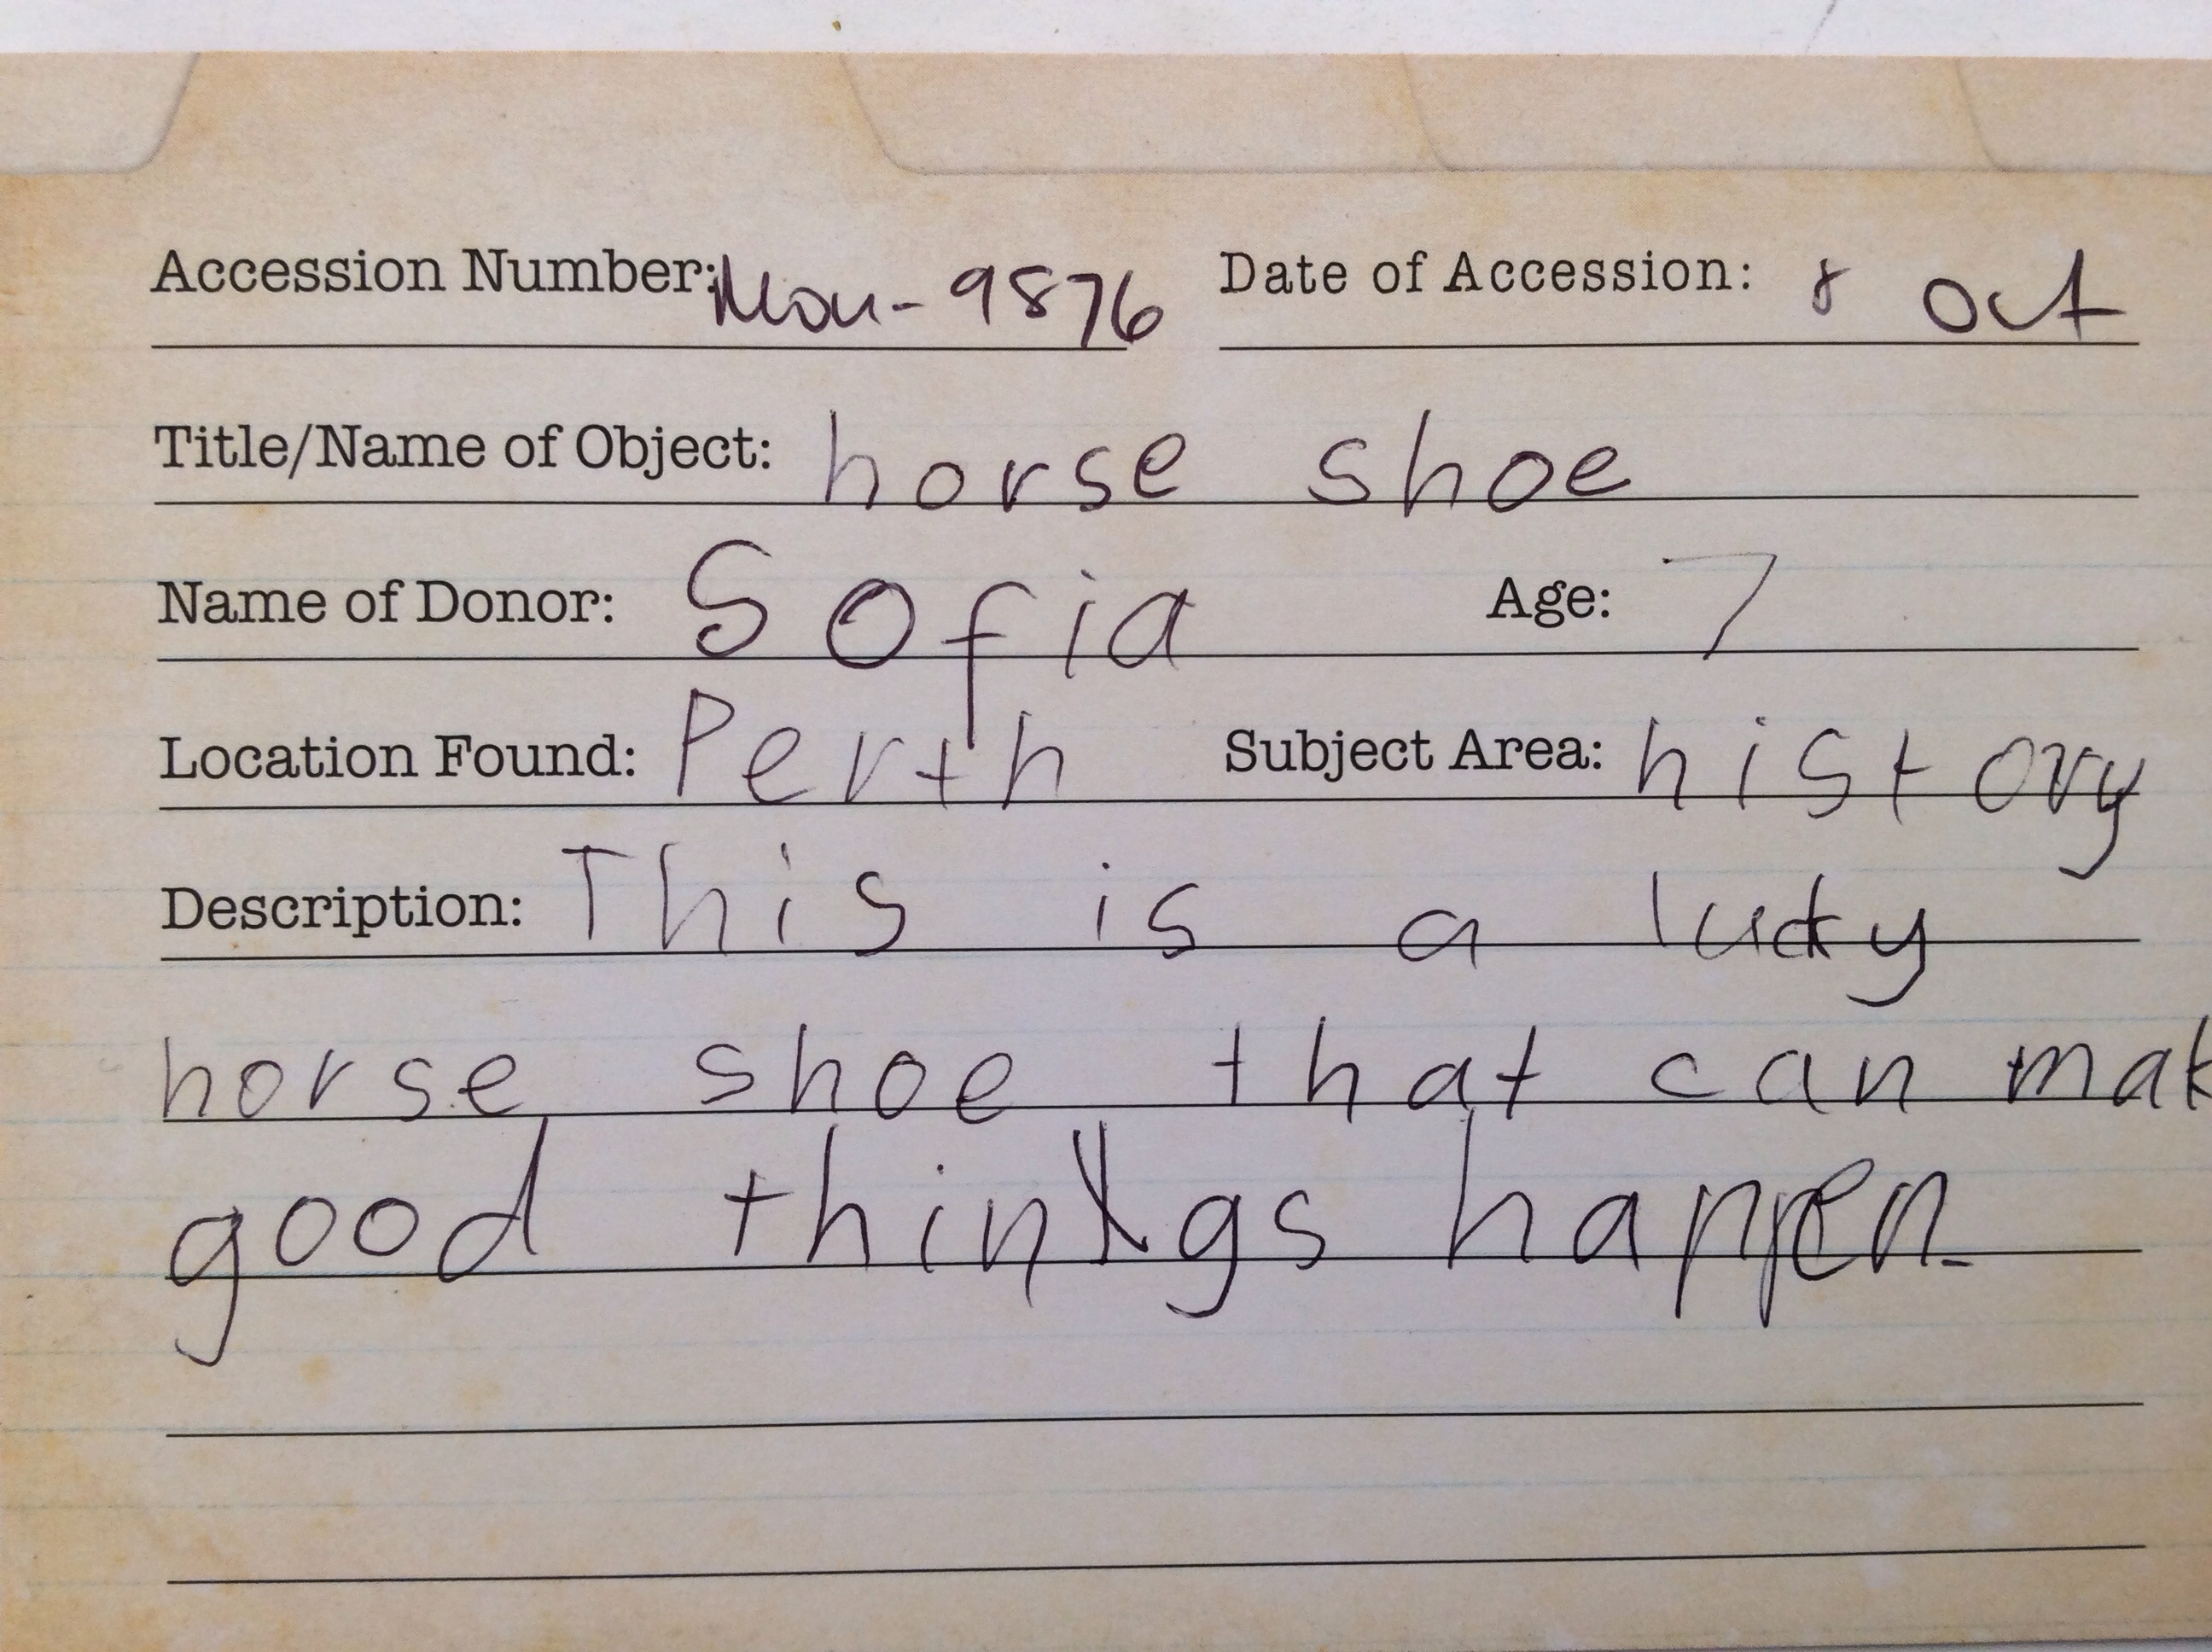 Accession Number: Mon-9876 Date of Accession: 8 Oct
Title/Name of Object: horse shoe
Name of Donor: Sofia Age: 7
Location Found: Perth Subject Area: history
Description: This is a lucky
horse shoe that can mak
good things happen.